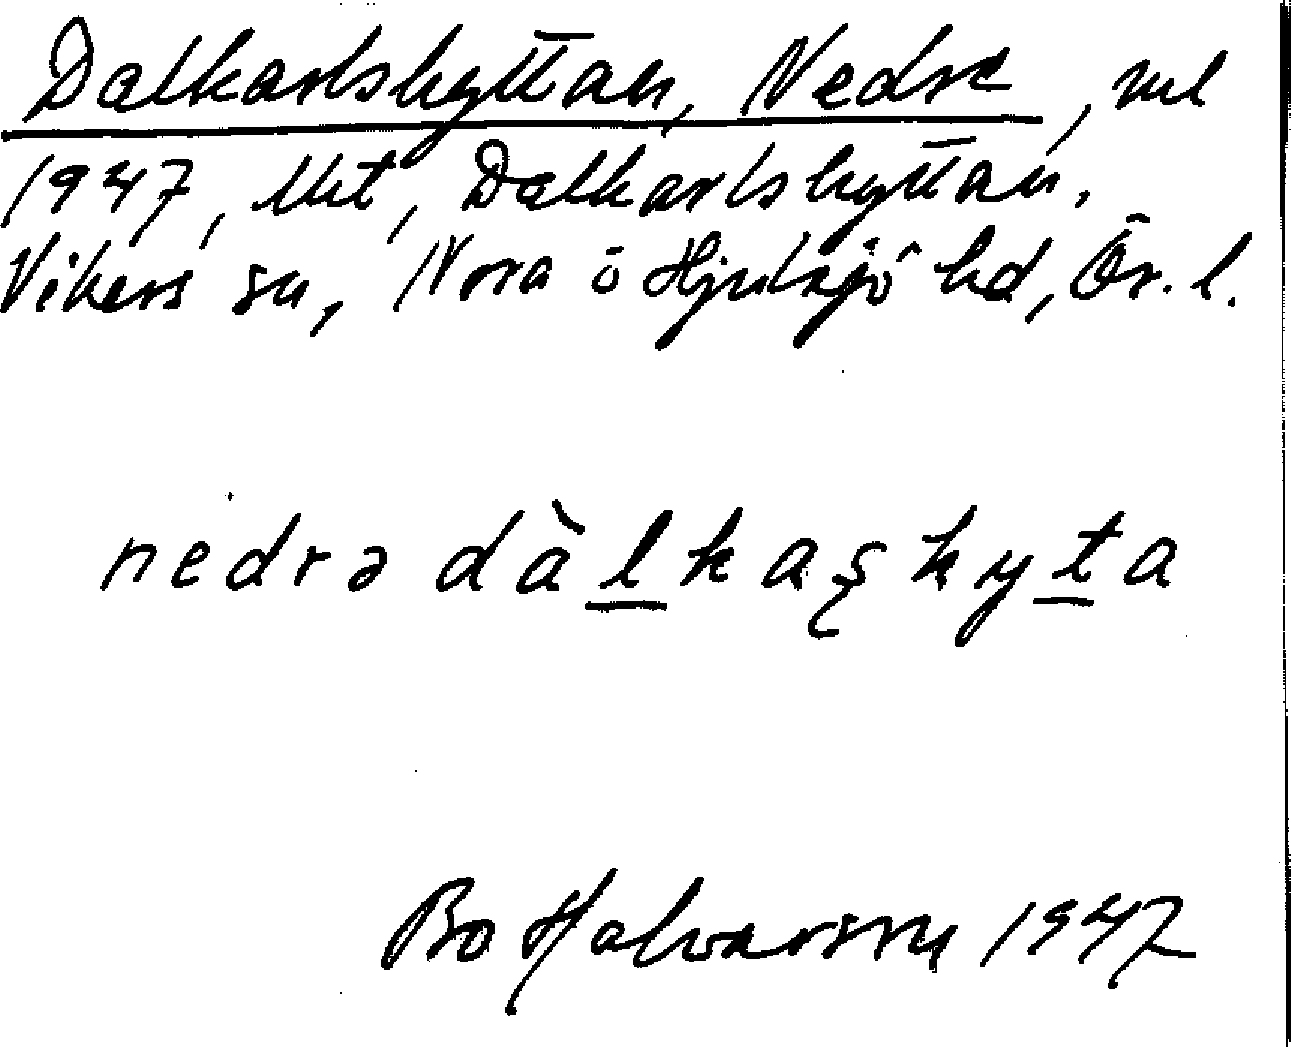 Dalkarlshyttan, Nedre, vid
1947, tkt, Dalkarlshyttan,
Vikers sn, Nora o Hjulsjö hd, Ör. l.
nedrə dàlkaʂhyta
Bo Halvarsson 1947